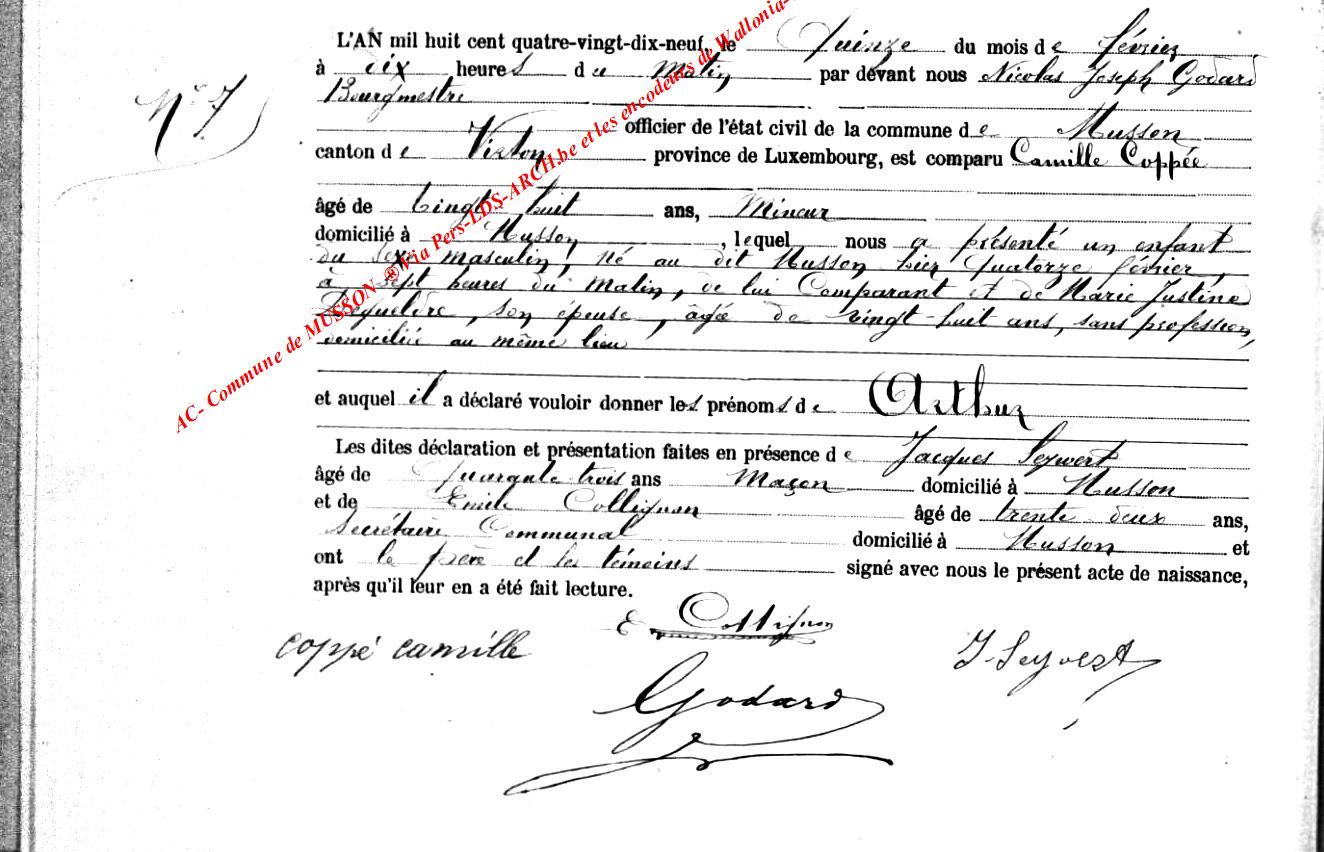 L'AN mil huit cent quatre-vingt-dix-neuf, le Quinze du mois de février
à dix heures du matin par devant nous Nicolas Joseph Godard
Bourgmestre
N° 7
officier de l'état civil de la commune de Musson
canton de Virton province de Luxembourg, est comparu Camille Coppée
âgé de Vingt huit ans, Mineur
domicilié à Musson, lequel nous a présenté un enfant
du sexe masculin, né au dit Musson hier quatorze février,
à sept heures du matin, de lui Comparant et de Marie Justine
son épouse, âgée de vingt-huit ans, sans profession,
domiciliée au même lieu
et auquel il a déclaré vouloir donner les prénoms de Arthur
Les dites déclaration et présentation faites en présence de Jacques Seywert
âgé de Quarante trois ans Maçon domicilié à Musson
et de Emile Collignon âgé de trente deux ans,
Secrétaire Communal domicilié à Musson et
ont le père et les témoins signé avec nous le présent acte de naissance,
après qu'il leur en a été fait lecture.
E Collignon
coppé camille
J. Seywert
Godard
AC- Commune de MUSSON ®Via Pers-LDS-ARCH.be et les encodeurs de Wallonia-